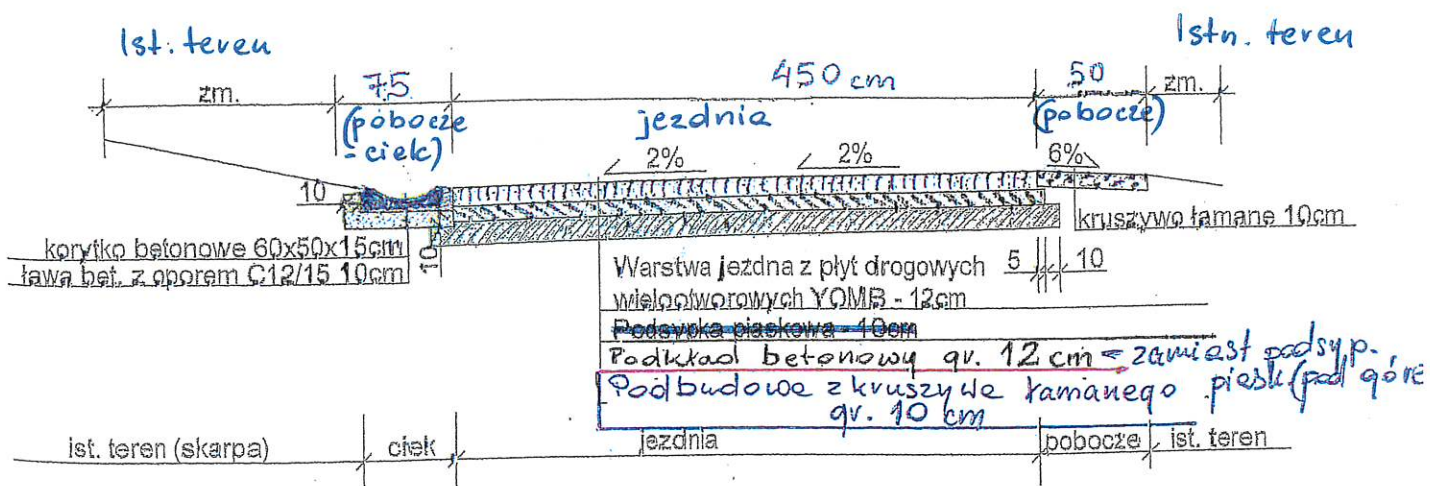 Ist. teren
Istn. teren
zm.
75
450 cm
50
zm.
(pobocze
- ciek)
jezdnia
(pobocze)
2%
2%
6%
10
kruszywo łamane 10cm
korytko betonowe 60x50x15cm
ława bet. z oporem C12/15 10cm
10
Warstwa jezdna z płyt drogowych
5
10
wielootworowych YOMB - 12cm
Podsypka piaskowa - 10cm
Podkład betonowy gr. 12 cm - zamiast podsyp.
Podbudowe z kruszywe łamanego piask (pod górę
gr. 10 cm
ist. teren (skarpa)
ciek
jezdnia
pobocze
ist. teren